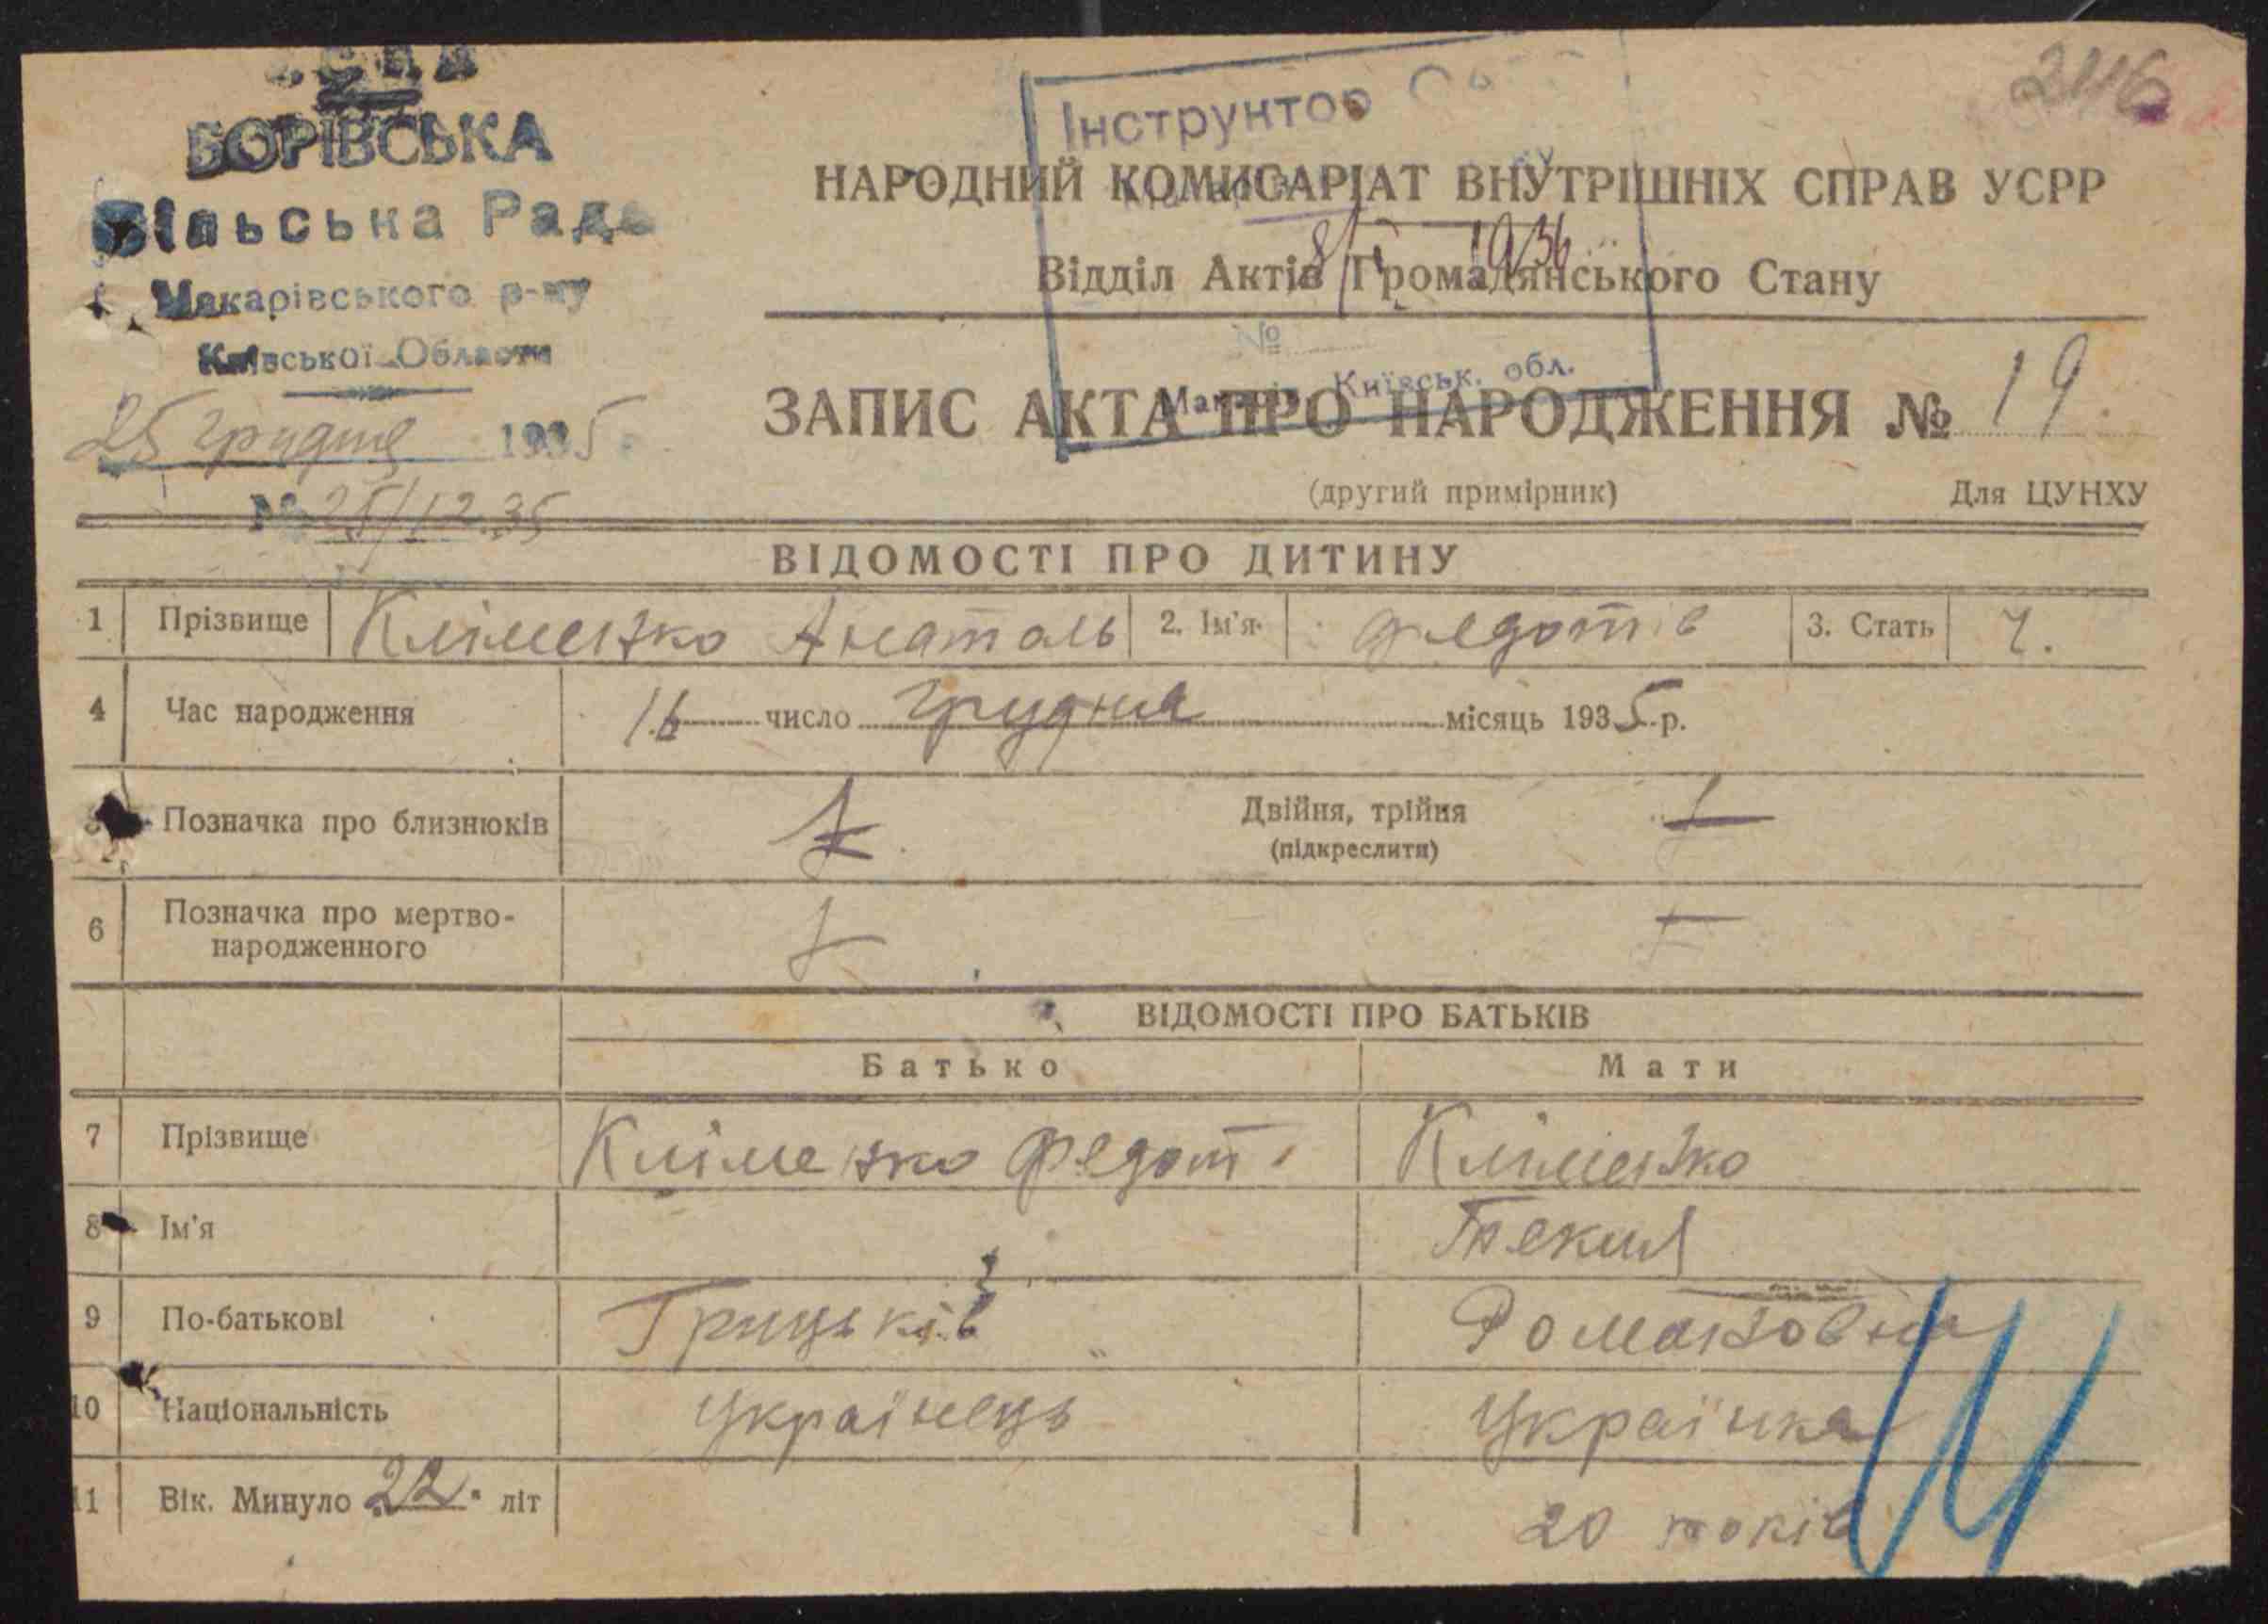 БОРІВСЬКА
Сільська Рада
Макарівського р-ну
Київської Области
25 грудня 1935
№ 25/12.35
Інструктор
246
НАРОДНИЙ КОМИСАРІАТ ВНУТРІШНІХ СПРАВ УСРР
8/I 1936
Відділ Актів Громадянського Стану
№
Макарів Київськ. обл.
ЗАПИС АКТА ПРО НАРОДЖЕННЯ № 19.
(другий примірник) Для ЦУНХУ
ВІДОМОСТІ ПРО ДИТИНУ
1 Прізвище Кліменко Анатоль 2. Ім'я Федотів 3. Стать Ч.
4 Час народження 16 число грудня місяць 1935 р.
5 Позначка про близнюків Двійня, трійня
(підкреслити)
6 Позначка про мертво-
народженного
ВІДОМОСТІ ПРО БАТЬКІВ
Батько Мати
7 Прізвище Кліменко Федот Кліменко
8 Ім'я Текля
9 По-батькові Грицьків Романовна
10 Національність Українець Українка
11 Вік. Минуло 22. літ 20 років